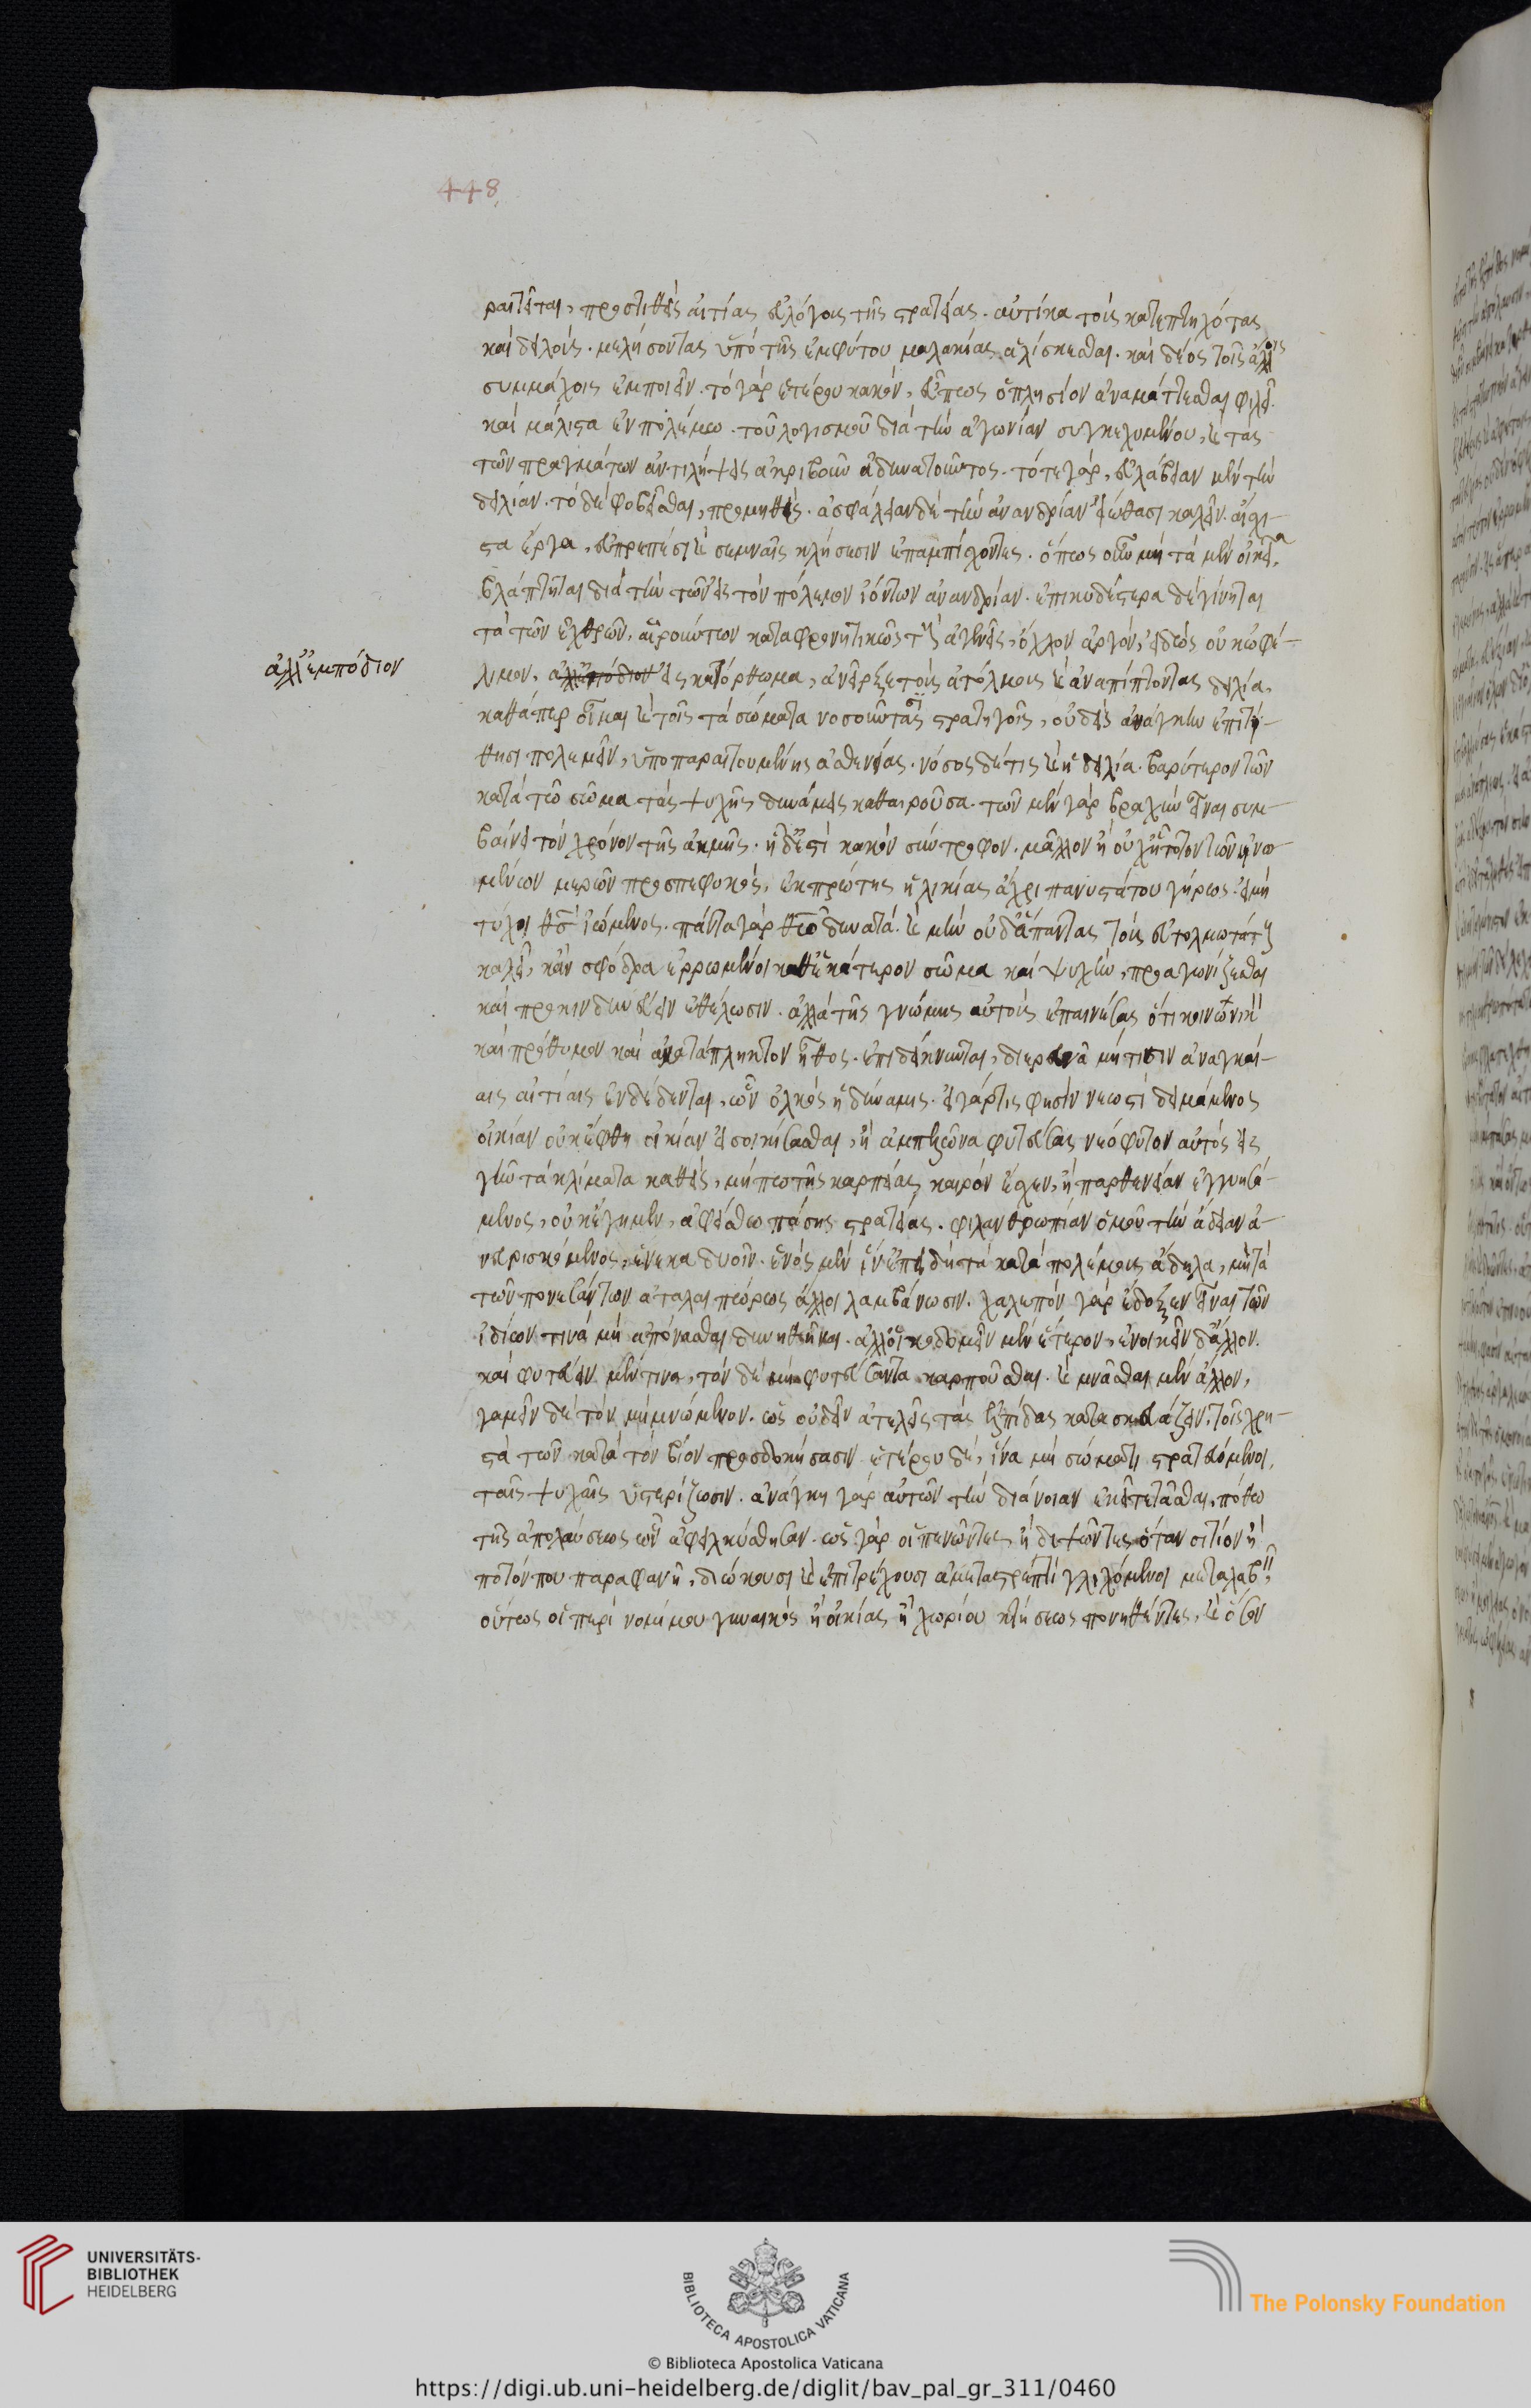 448
ραιτεῖται, προστιθεὶς αἰτίας εὐλόγους τῆς στρατείας. αὐτίκα τοὺς κατεπτηχότας
καὶ δειλοὺς. μελήσοντας ὑπὸ τῆς ἐμφύτου μαλακίας ἁλίσκεσθαι. καὶ δέος τοῖς ἄλλοις
συμμάχοις ἐμποιεῖν. τὸ γὰρ ἑτέρου κακὸν, εἴπως ὁ πλησίον ἀναμάττεσθαι φιλεῖ.
καὶ μάλιστα ἐν πολέμω. τοῦ λογισμοῦ διὰ τὴν ἀγωνίαν συγκεχυμένου, καὶ τὰς
τῶν πραγμάτων ἀντιλήψεις ἀκριβοῦν ἀδυνατοῦντος. τότε γὰρ, εὐλάβειαν μὲν τὴν
δειλίαν. τὸ δὲ φοβεῖσθαι, προμηθὲς. ἀσφάλειαν δὲ τὴν ἀνανδρίαν εἰώθασι καλεῖν. αἴσχι-
στα ἔργα, εὐπρεπέσι καὶ σεμναῖς κλήσεσιν ἐπαμπίσχοντες. ὅπως οὖν μὴ τὰ μὲν οἰκεῖα
βλάπτηται διὰ τὴν τῶν εἰς τὸν πόλεμον ἰόντων ἀνανδρίαν. ἐπικυδέστερα δὲ γίνηται
τὰ τῶν ἐχθρῶν, αἱρούντων καταφρονητικῶς τοὺς ἀγενεῖς,
ἀλλ' ἐμπόδιον
λιμον, ἀλλ' ἐμπόδιον εἰς κατόρθωμα, ἀνεῖρξε τοὺς ἀτόλμους καὶ ἀναπίπτοντας δειλία,
καθάπερ οἶμαι καὶ τοῖς τὰ σώματα νοσοῦντας στρατηγοῖς, οὐδεὶς ἀνάγκην ἐπιτί-
θησι πολεμεῖν, ὑποπαραιτουμένης ἀσθενείας. νόσος δέ τις καὶ ἡ δειλία. βαρύτερον τῶν
κατὰ τὸ σῶμα τὰς ψυχῆς δυνάμεις καθαιροῦσα. τῶν μὲν γὰρ βραχὺν εἶναι συμ-
βαίνει τὸν χρόνον τῆς ἀκμῆς. ἡ δ' ἐστὶ κακὸν σύντροφον. μᾶλλον ἢ οὐχ ἧττον τῶν ἡνω
μένων μερῶν προσπεφυκὸς, ἐκ πρώτης ἡλικίας ἄχρι πανυστάτου γήρως. εἰ μὴ
τύχοι θῦ ἰώμενος. πάντα γὰρ θῶ δυνατά. καὶ μὴν οὐδ' ἅπαντας τοὺς εὐτολμοτάτους
καλεῖ, κἂν σφόδρα ἐρρωμένοι καθ' ἑκάτερον σῶμα καὶ ψυχὴν, προαγωνίζεσθαι
καὶ προκινδυνεύειν ἐθέλωσιν. ἀλλὰ τῆς γνώμης αὐτοὺς ἐπαινέσας ὅτι κοινωνικὸν
καὶ πρόθυμον καὶ ἀκατάπληκτον ἦθος. ἐπιδείκνυνται, διερευνᾶ μή τισιν ἀναγκαί-
αις αἰτίαις ἐνδέδενται, ὧν ὁλκὸς ἡ δύναμις. εἰ γάρ τις φησὶν νεωστὶ δειμάμενος
οἰκίαν οὐκ ἔφθη οἰκίαν εἰσοικίσασθαι, ἢ ἀμπελῶνα φυτεύσας νεόφυτον αὐτὸς εἰς
γῆν τὰ κλίματα καθεὶς, μήπω τῆς καρπείας καιρὸν ἔσχεν, ἢ παρθενείαν ἐγγυησά-
μενος, οὐκ ἔγημεν, ἀφείσθω πάσης στρατείας. φιλανθρωπίαν ὁμοῦ τὴν ἄδειαν ἀ-
νευρισκόμενος, ἕνεκα δυοῖν. ἑνὸς μὲν ἵν' ἐπειδὴ τὰ κατὰ πολέμους ἄδηλα, μὴ τὰ
τῶν πονεσάντων ἀταλαιπώρως ἄλλοι λαμβάνωσιν. χαλεπὸν γὰρ ἔδοξεν εἶναι τῶν
ἰδίων τινὰ μὴ ἀπόνασθαι δυνηθῆναι. ἀλλ' οἰκοδομεῖν μὲν ἕτερον, ἐνοικεῖν δ' ἄλλον.
καὶ φυτεύειν μέν τινα, τὸν δὲ μὴ φυτεύσαντα καρποῦσθαι. καὶ μνᾶσθαι μὲν ἄλλον,
γαμεῖν δὲ τὸν μὴ μνώμενον. ὡς οὐδὲν ἀτελεῖς τὰς ἐλπίδας κατασκευάζειν, τοῖς χρη-
στὰ τῶν κατὰ τὸν βίον προσδοκήσασιν ἑτέρου δὲ, ἵνα μὴ σώματι στρατευόμενοι,
ταῖς ψυχαῖς ὑστερίζωσιν. ἀνάγκη γὰρ αὐτῶν τὴν διάνοιαν ἐκεῖ τετάσθαι, πόθω
τῆς ἀπολαύσεως ὧν ἀφειλκύσθησαν. ὡς γὰρ οἱ πεινῶντες ἢ διψῶντες ὅταν σιτίον ἢ
ποτόν που παραφανῆ, διώκουσι καὶ ἐπιτρέχουσι ἀμεταστρεπτὶ γλιχόμενοι μεταλαβεῖν,
οὕτως οἱ περὶ νομίμου γυναικὸς ἢ οἰκίας ἢ χωρίου κτήσεως πονηθέντες, καὶ ὅσον
UNIVERSITÄTS-
BIBLIOTHEK
HEIDELBERG
BIBLIOTECA APOSTOLICA VATICANA
The Polonsky Foundation
© Biblioteca Apostolica Vaticana
https://digi.ub.uni-heidelberg.de/diglit/bav_pal_gr_311/0460